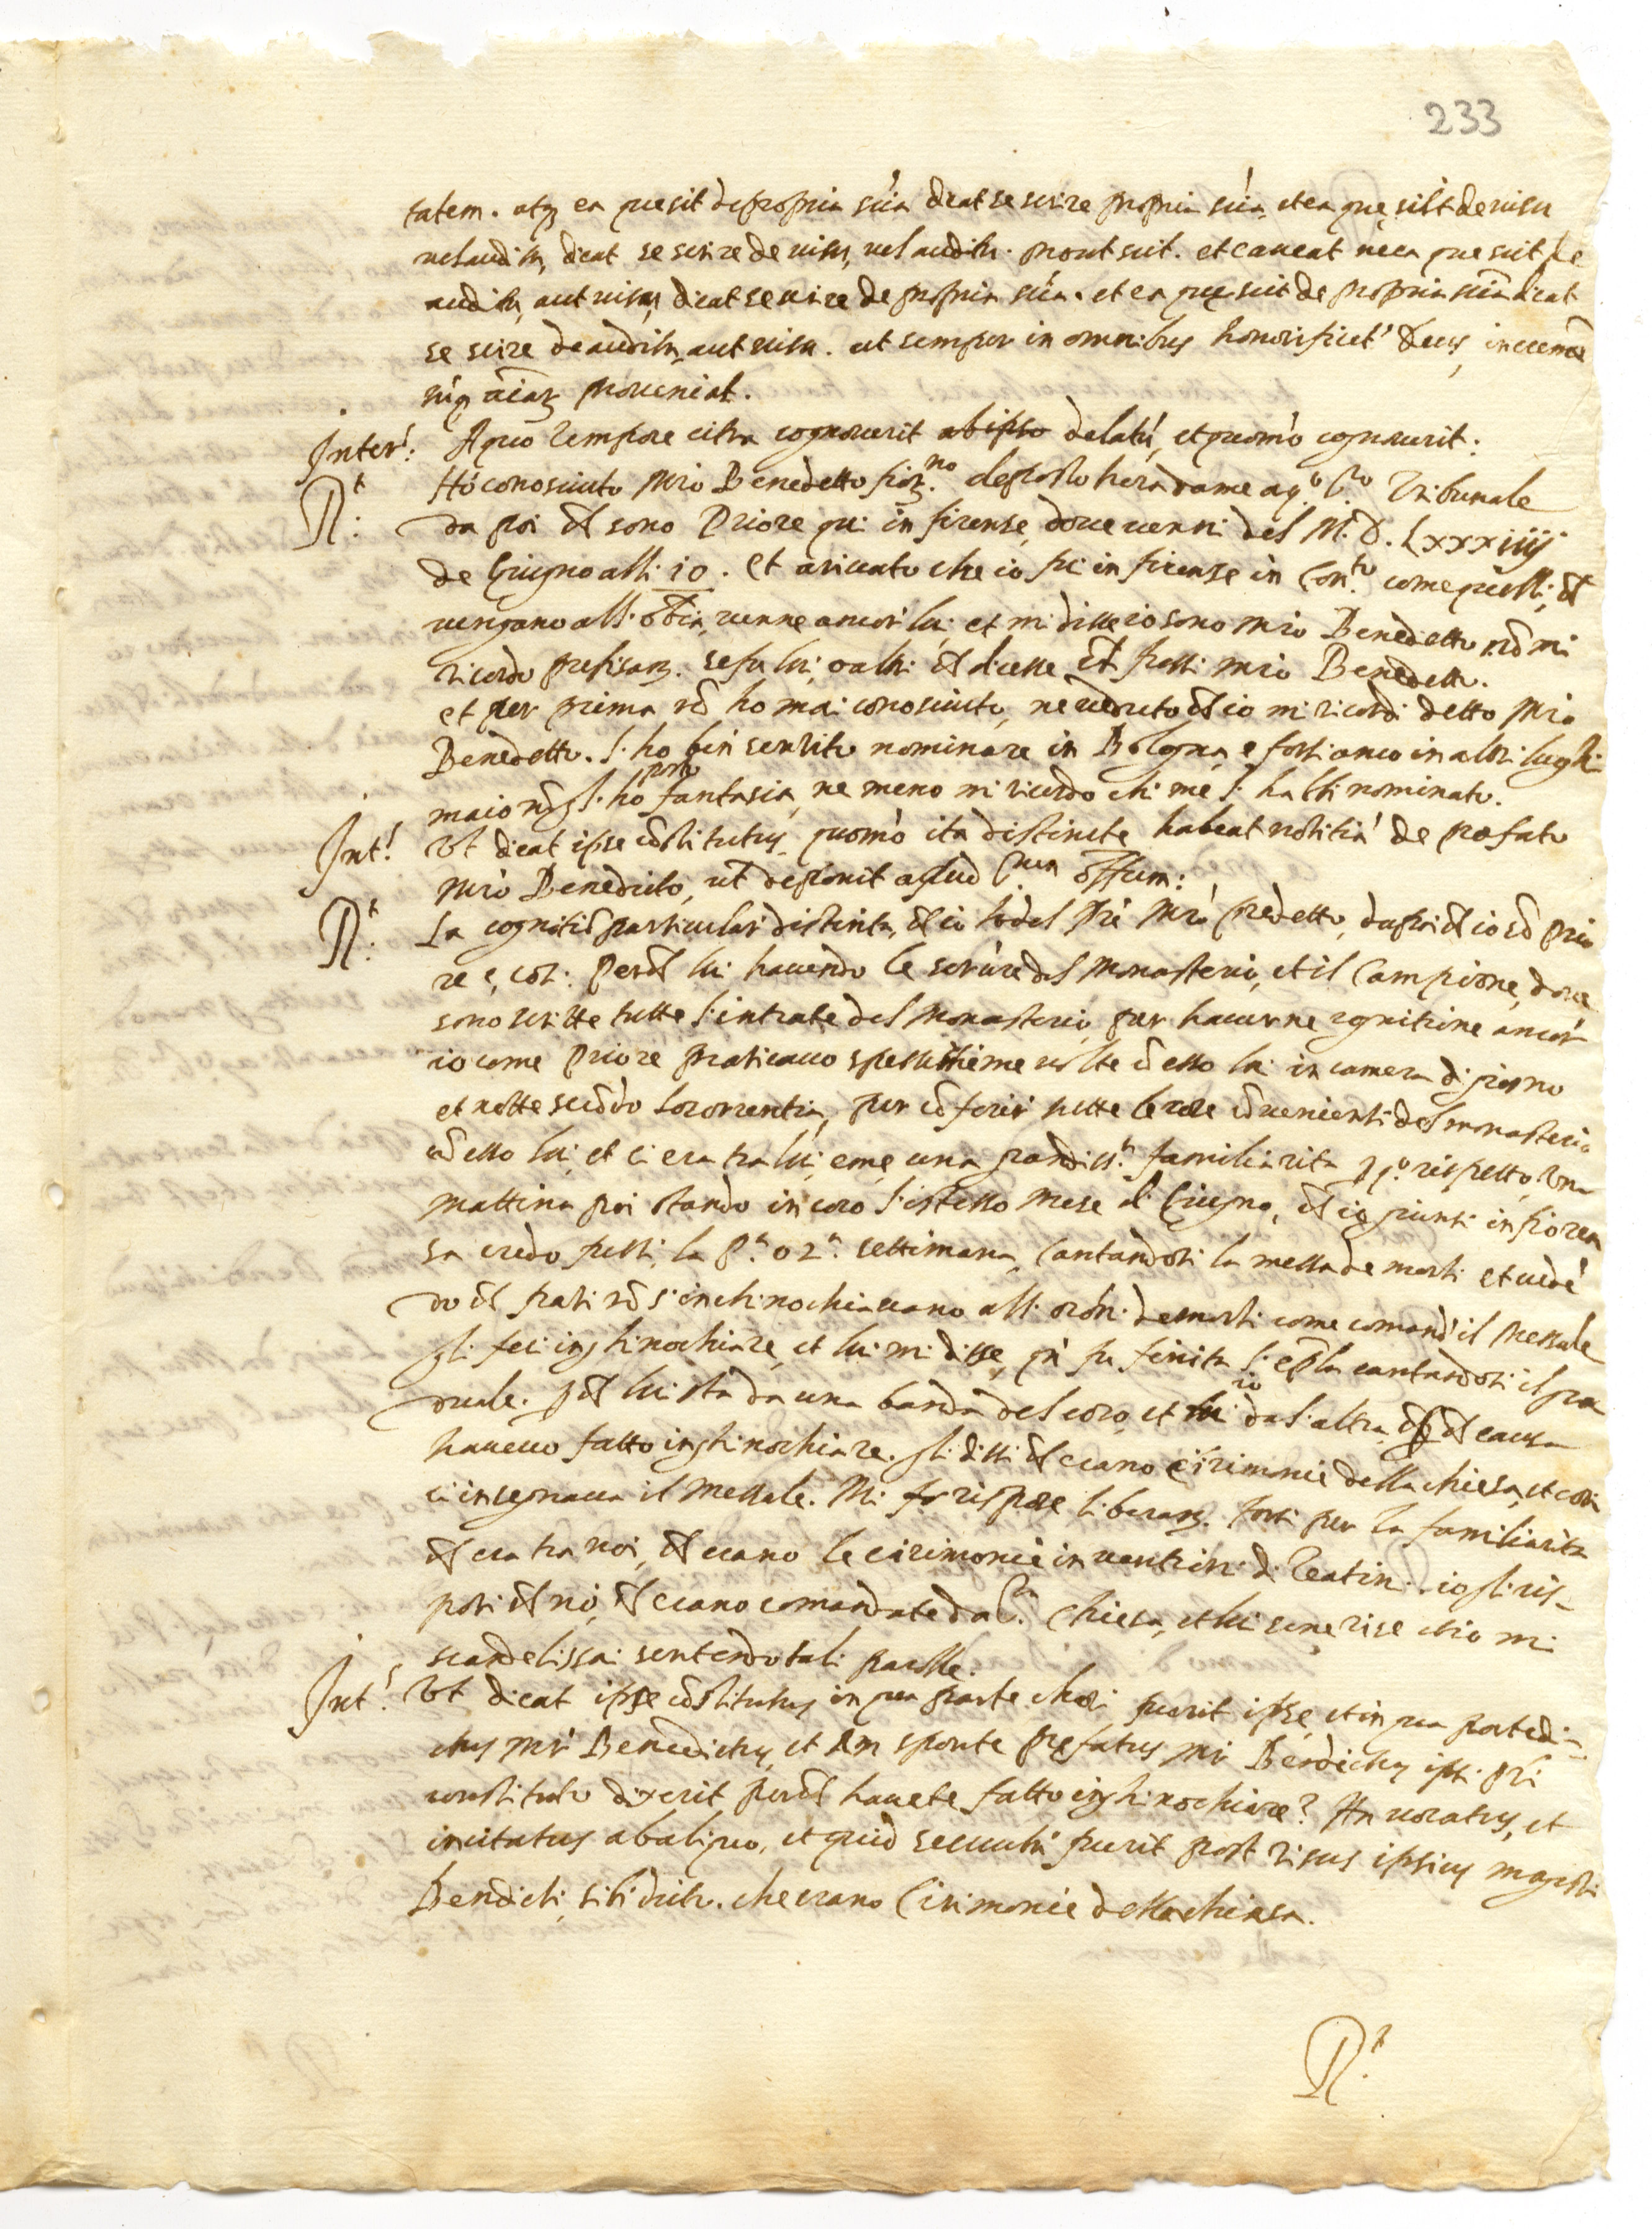 233
tatem. atq3 ea que sit de propria sciã dicat se scire propria sciã, et ea que sit de uisu
uel auditu, dicat se scire de uisu, uel auditu. prout scit. et caueat ne ea que scit de
auditu, aut uisu, dicat se scire de propria sciã. et ea que scit de propria sciã dicat
se scire de auditu, aut uisu. ut semper in omnibus honorificet' Deus,
proueniat.
Inter.' A quo tempore citra cognouerit ab ipso delatũ, et quomò cognouerit:
R.t Hò conosciuto Mrò Benedetto fior.no deposto hora da me a q.o S.to Tribunale
da poi ch sono Priore qui in firenze, doue uenni del M. D. Lxxxiiij
de Giugno alli 10. et ariuato che io fui in firenze in Con.to come quelli, ch
uengano all' obedia, uenne ancor lui et mi disse io sono mrò Benedetto, nõ mi
ricordo presisam. se fu lui, o altri ch dicesse ch fussi mrò Benedetto.
et per prima nõ ho mai conosciuto, ne ueduto ch io mi ricordi detto Mrò
Benedetto. l' ho ben sentito nominare in Bologna e forsi anco in altri luoghi
ma io nõ gl' ho posto fantasia, ne meno mi ricordo chi me l' habbi nominato.
Int.' Vt dicat ipse cõstitutus quomò ita distincte habeat notitiã de prefato
Mrò Benedicto, ut deponit apud S.um offium:
R.t La cognitiõ particular distinta, ch io ho del Prè Mrò predetto, da poi ch io sõ prio
re è, cosi: perch lui hauendo le scriture del monasterio, et il Campione, doue
sono scritte tutte l' intrate del Monasterio, per hauerne cognitione ancor
io come Priore praticauo spessissime uolte cõ esso lui in camera di giorno
et notte secõdo l' occorrentia, per cõferir tutte le cose cõuenienti del monasterio
cõ esso lui, et ci era tra lui, e me, una grandiss.a familiarita p q.o rispetto. Vna
mattina poi stando in coro l' istesso mese di Giugno, ch io giunsi in fioren
sa credo fussi la p.a o 2.a settimana, Cantandosi la messa de morti et uedẽ
do ch frati nõ s' inchinochiauano all' oròni de morti come comanda il Messale
gli feci inghinochiare, et lui mi disse, qñ fu finita l' ep̃la cantandosi il gra
duale. p ch lui sta da una banda del coro, et io da l' altra, p ch causa
haueuo fatto inghinochiare. gli dissi ch erano cirimonie della chiesa, et cosi
ci insegnaua il Messale. Mi rispose liberam. forsi per la familiarita
ch era tra noi, ch erano le cirimonie inuentioni di Teatini. io gli ris-
posi ch nò, ch erano comandate da S.ta Chiesa, et lui se ne rise ch io mi
scandelissai sentendo tali parolle.
Int.' Vt dicat ipse cõstitutus in qua parte chori fuerit ipse, et in qua parte di-
ctus Mr Benedictus, et an sponte prefatus Mr Bendictus ipsi
constituto dixerit perch hauete fatto inghinochiare? An uocatus, et
incitatus ab aliquo, et quid secutũ fuerit post risus ipsius magistri
Bendicti, sibi dicto. che erano Cirimonie della chiesa.
R.t